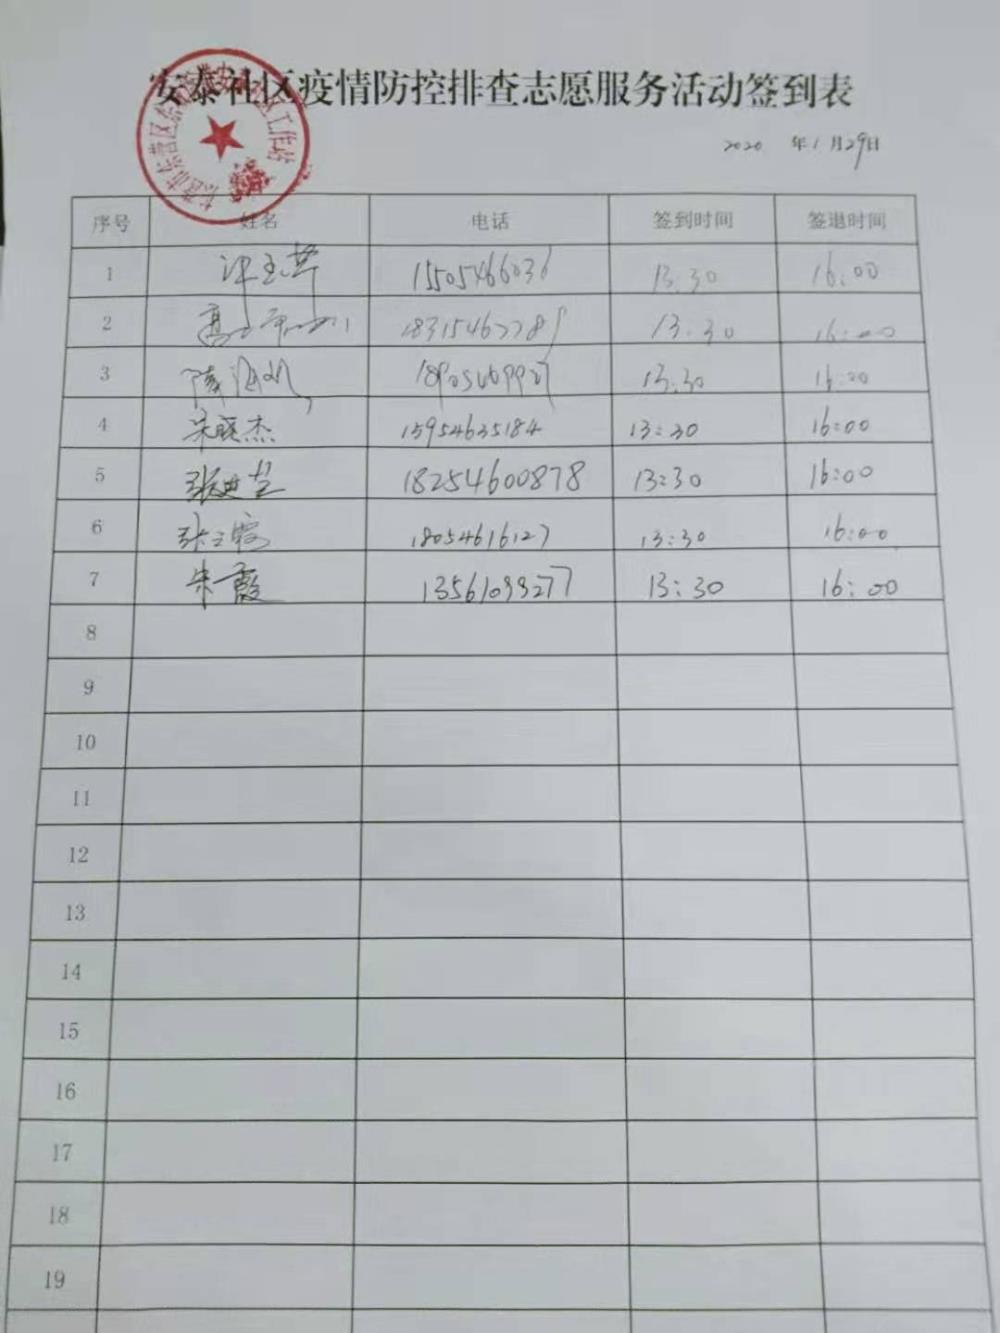 安泰社区疫情防控排查志愿服务活动签到表
2020 年1月29日
序号 姓名 电话 签到时间 签退时间
1 15505466036 13:30 16:00
2 13:30 16:00
3 13:30 16:00
4 宋晓杰 15954635184 13:30 16:00
5 18254600878 13:30 16:00
6 18054616127 13:30 16:00
7 朱霞 13561099277 13:30 16:00
8
9
10
11
12
13
14
15
16
17
18
19